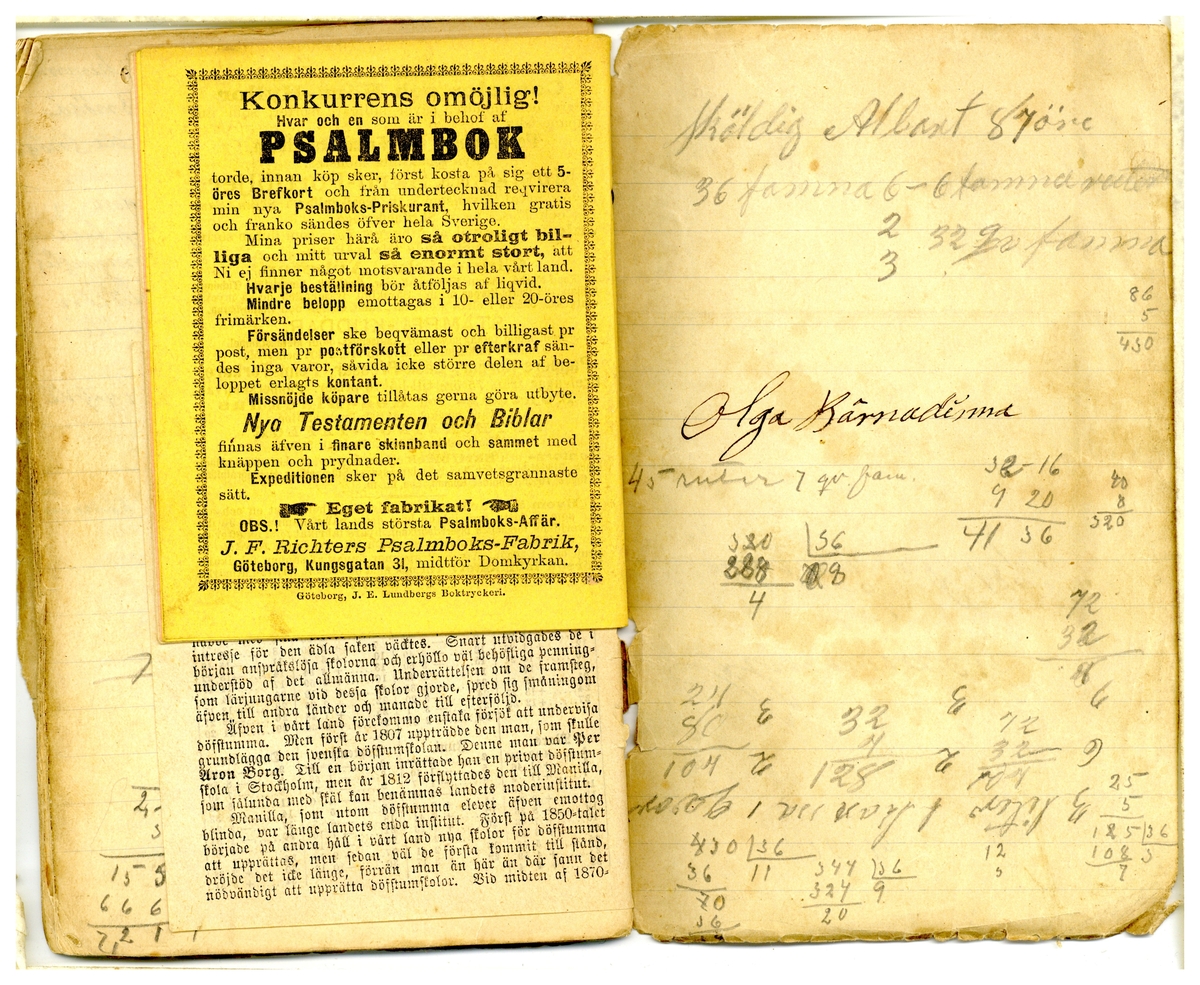 Konkurrens omöjlig!
Hvar och en som är i behof af
PSALMBOK
torde, innan köp sker, först kosta på sig ett 5-
öres Brefkort och från undertecknad reqvirera
min nya Psalmboks-Priskurant, hvilken gratis
och franko sändes öfver hela Sverige.
Mina priser härå äro så otroligt bil-
liga och mitt urval så enormt stort, att
Ni ej finner något motsvarande i hela vårt land.
Hvarje beställning bör åtföljas af liqvid.
Mindre belopp emottagas i 10- eller 20-öres
frimärken.
Försändelser ske beqvämast och billigast pr
post, men pr postförskott eller pr efterkraf sän-
des inga varor, såvida icke större delen af be-
loppet erlagts kontant.
Missnöjde köpare tillåtas gerna göra utbyte.
Nya Testamenten och Biblar
finnas äfven i finare skinnband och sammet med
knäppen och prydnader.
Expeditionen sker på det samvetsgrannaste
sätt.
Eget fabrikat!
OBS.! Vårt lands största Psalmboks-Affär.
J. F. Richters Psalmboks-Fabrik,
Göteborg, Kungsgatan 31, midtför Domkyrkan.
Göteborg, J. E. Lundbergs Boktryckeri.
intresje för den ädla saken väcktes. Snart utvidgades de i
början anspråkslösa skolorna och erhöllo väl behöfliga penning-
understöd af det allmänna. Underrättelsen om de framsteg,
som lärjungarne vid dessa skolor gjorde, spred sig småningom
äfven till andra länder och manade till efterföljd.
Äfven i vårt land förekommo enstaka försök att undervisa
döfstumma. Men först år 1807 uppträdde den man, som skulle
grundlägga den svenska döfstumskolan. Denne man var Per
Aron Borg. Till en början inrättade han en privat döfstum-
skola i Stockholm, men år 1812 förflyttades den till Manilla,
som sålunda med skäl kan benämnas landets moderinstitut.
Manilla, som utom döfstumma elever äfven emottog
blinda, var länge landets enda institut. Först på 1850-talet
började på andra håll i vårt land nya skolor för döfstumma
att upprättas, men sedan väl de första kommit till stånd,
dröjde det icke länge, förrän man än här än där fann det
nödvändigt att upprätta döfstumskolor. Vid midten af 1870-
7
2-
15
6 6 6
sköldig Albart 87öre
36 famna 6-6 famna
2 32 famna
3
86
5
430
Olga Bärnadinna
45 ruter 7 qv. fam.
32-16
9 20
41 36
80
8
320
320 36
4
72
32
24
32
4
128
72
32
104
3 2
3 2
6
25
5
185 36
108 3
7
430 36
36 11
70
36
344 36
324 9
20
12